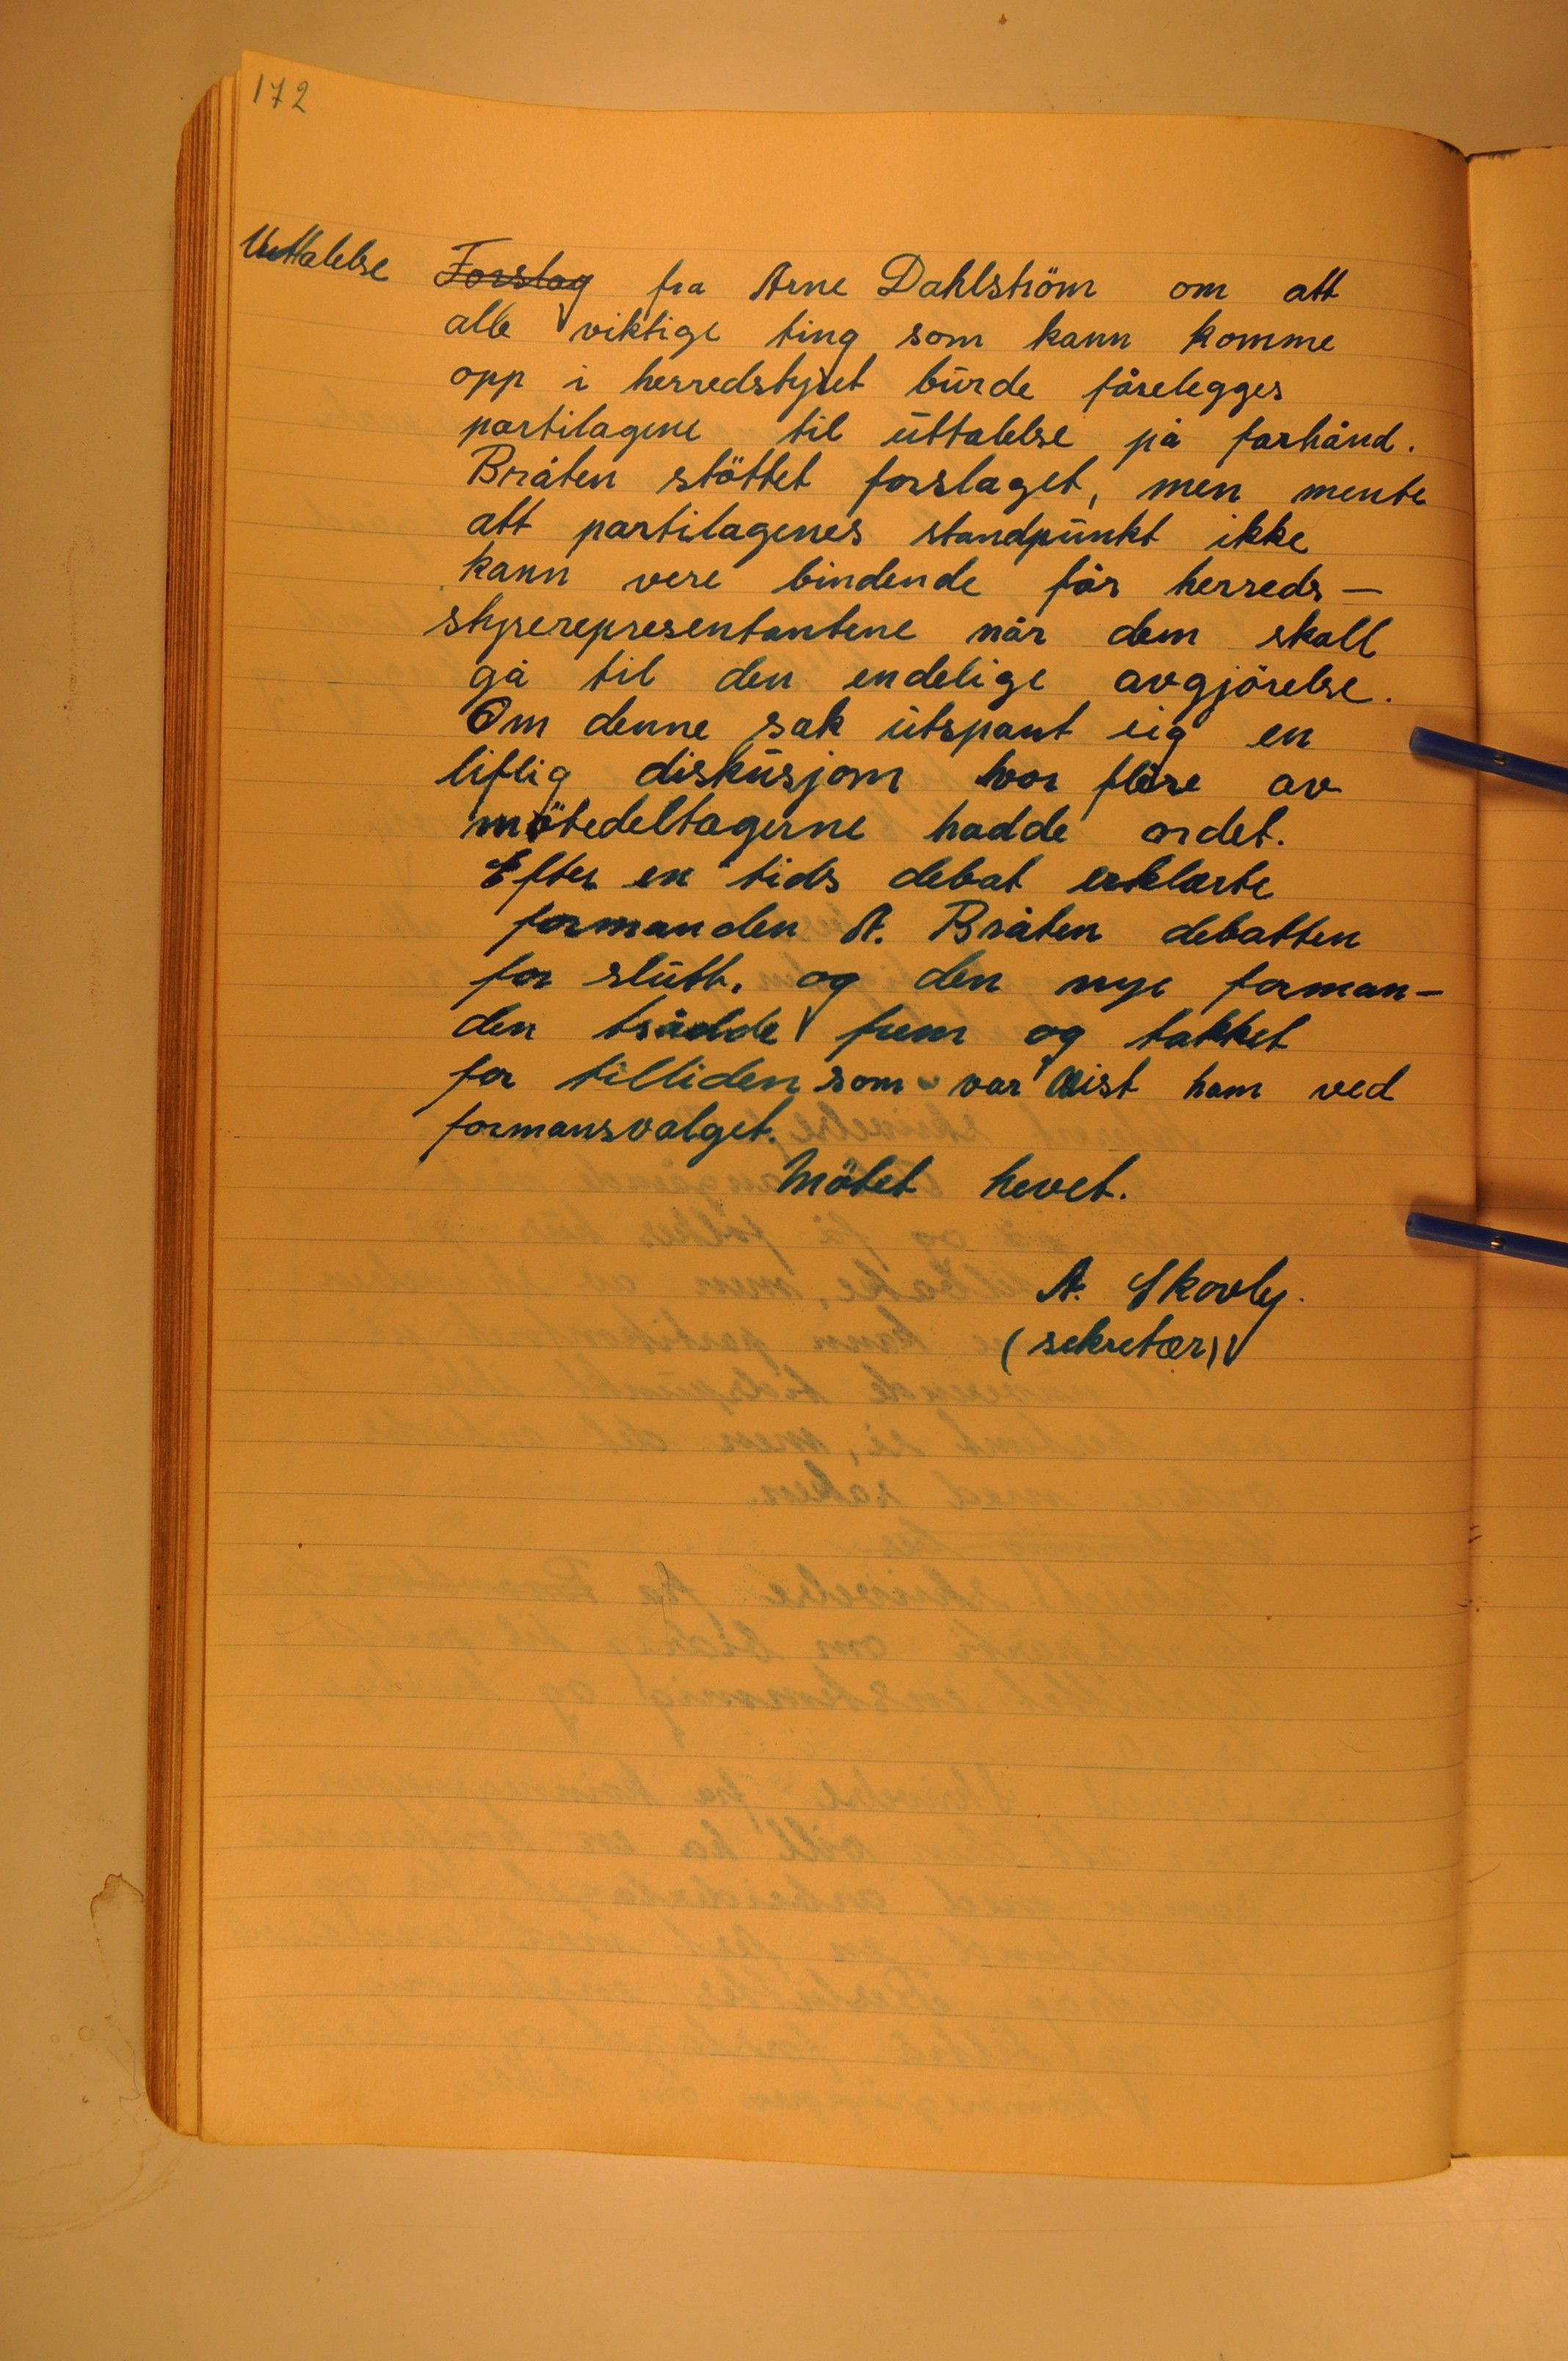 172
Uttalelse Forslag fra Arne Dahlström om att
alle viktige ting som kann komme
opp i herredstyret bürde fårelegges
partilagene til üttalelse på farhånd.
Bråten stöttet forslaget, men mente
att partilagenes standpünkt ikke
kann vere bindende får herreds-
styrerepresentantene når dem skall
gå til den endelige avgjörelse.
Om denne sak ütspant sig en
liflig disküsjom hvor flere av
mötedeltagerne hadde ordet.
Efter en tids debat erklærte
formanden A. Bråten debatten
for slütt. og den nye forman-
den trådde frem og takket
for tilliden som var vist ham ved
formansvalget.
Mötet hevet.
A. Skovly.
(sekretær)